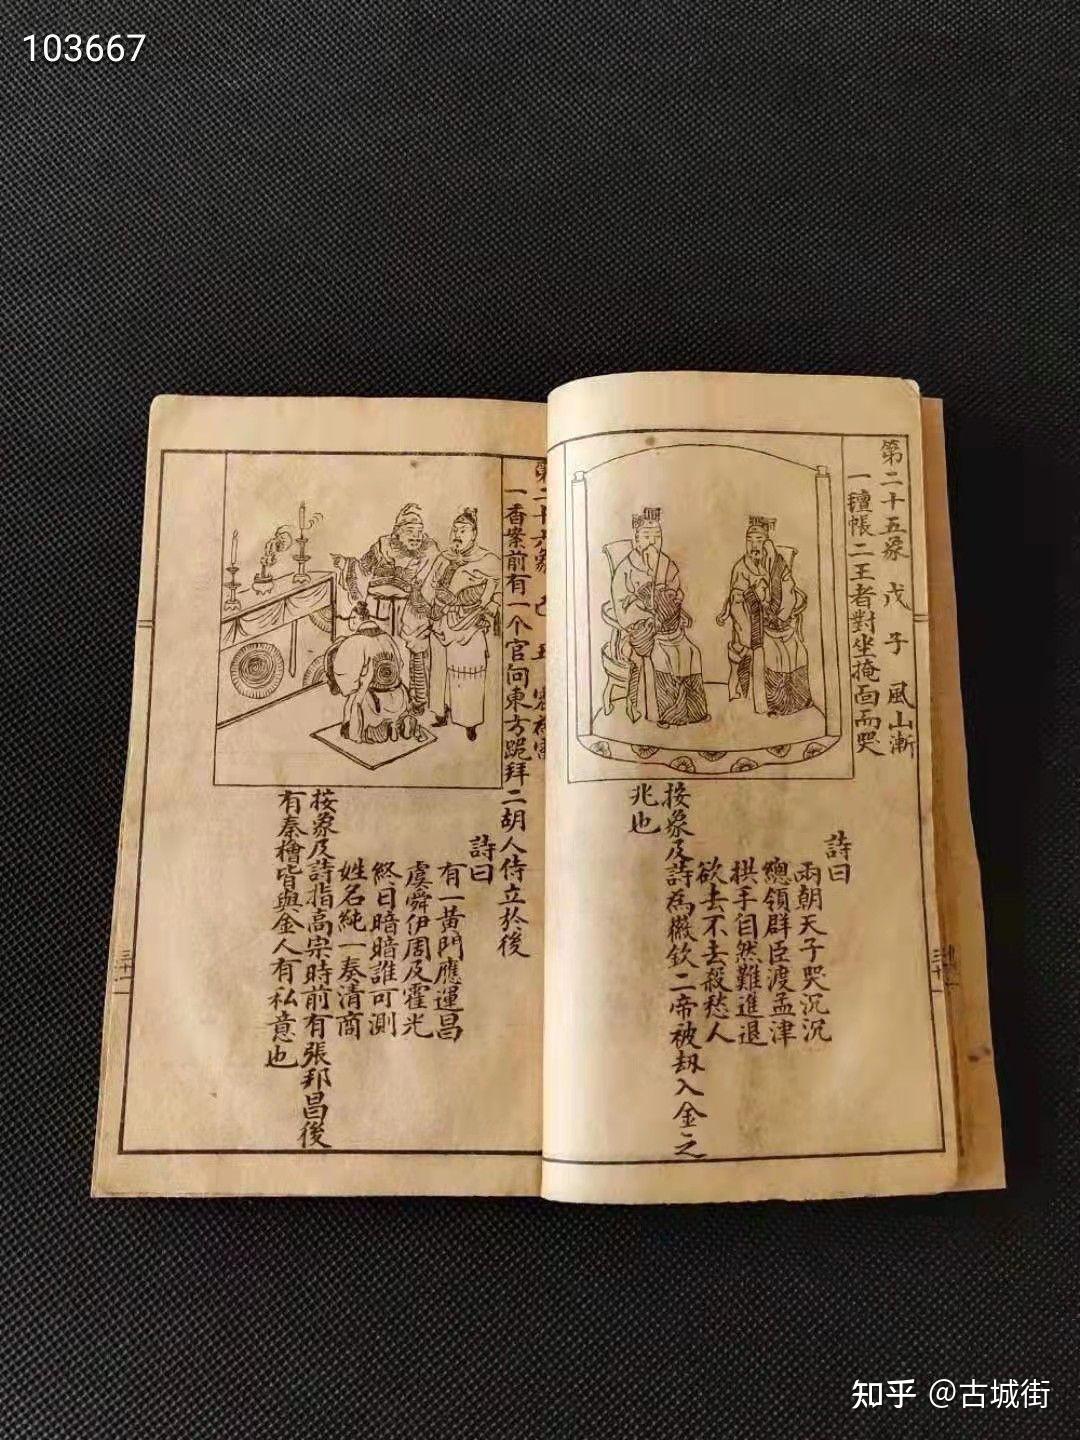 103667
第二十五象 戊子 風山漸
一氊帳二王者對坐掩面而哭
詩曰
兩朝天子哭沉沉
總領群臣渡孟津
拱手自然難進退
欲去不去殺愁人
按象及詩為徽欽二帝被刼入金之
兆也
第二十六象
一香案前有一个官向東方跪拜二胡人侍立於後
詩曰
有一黃門應運昌
虞舜伊周及霍光
終日暗暗誰可測
姓名純一奏清商
按象及詩指高宗時前有張邦昌後
有秦檜皆與金人有私意也
知乎 @古城街